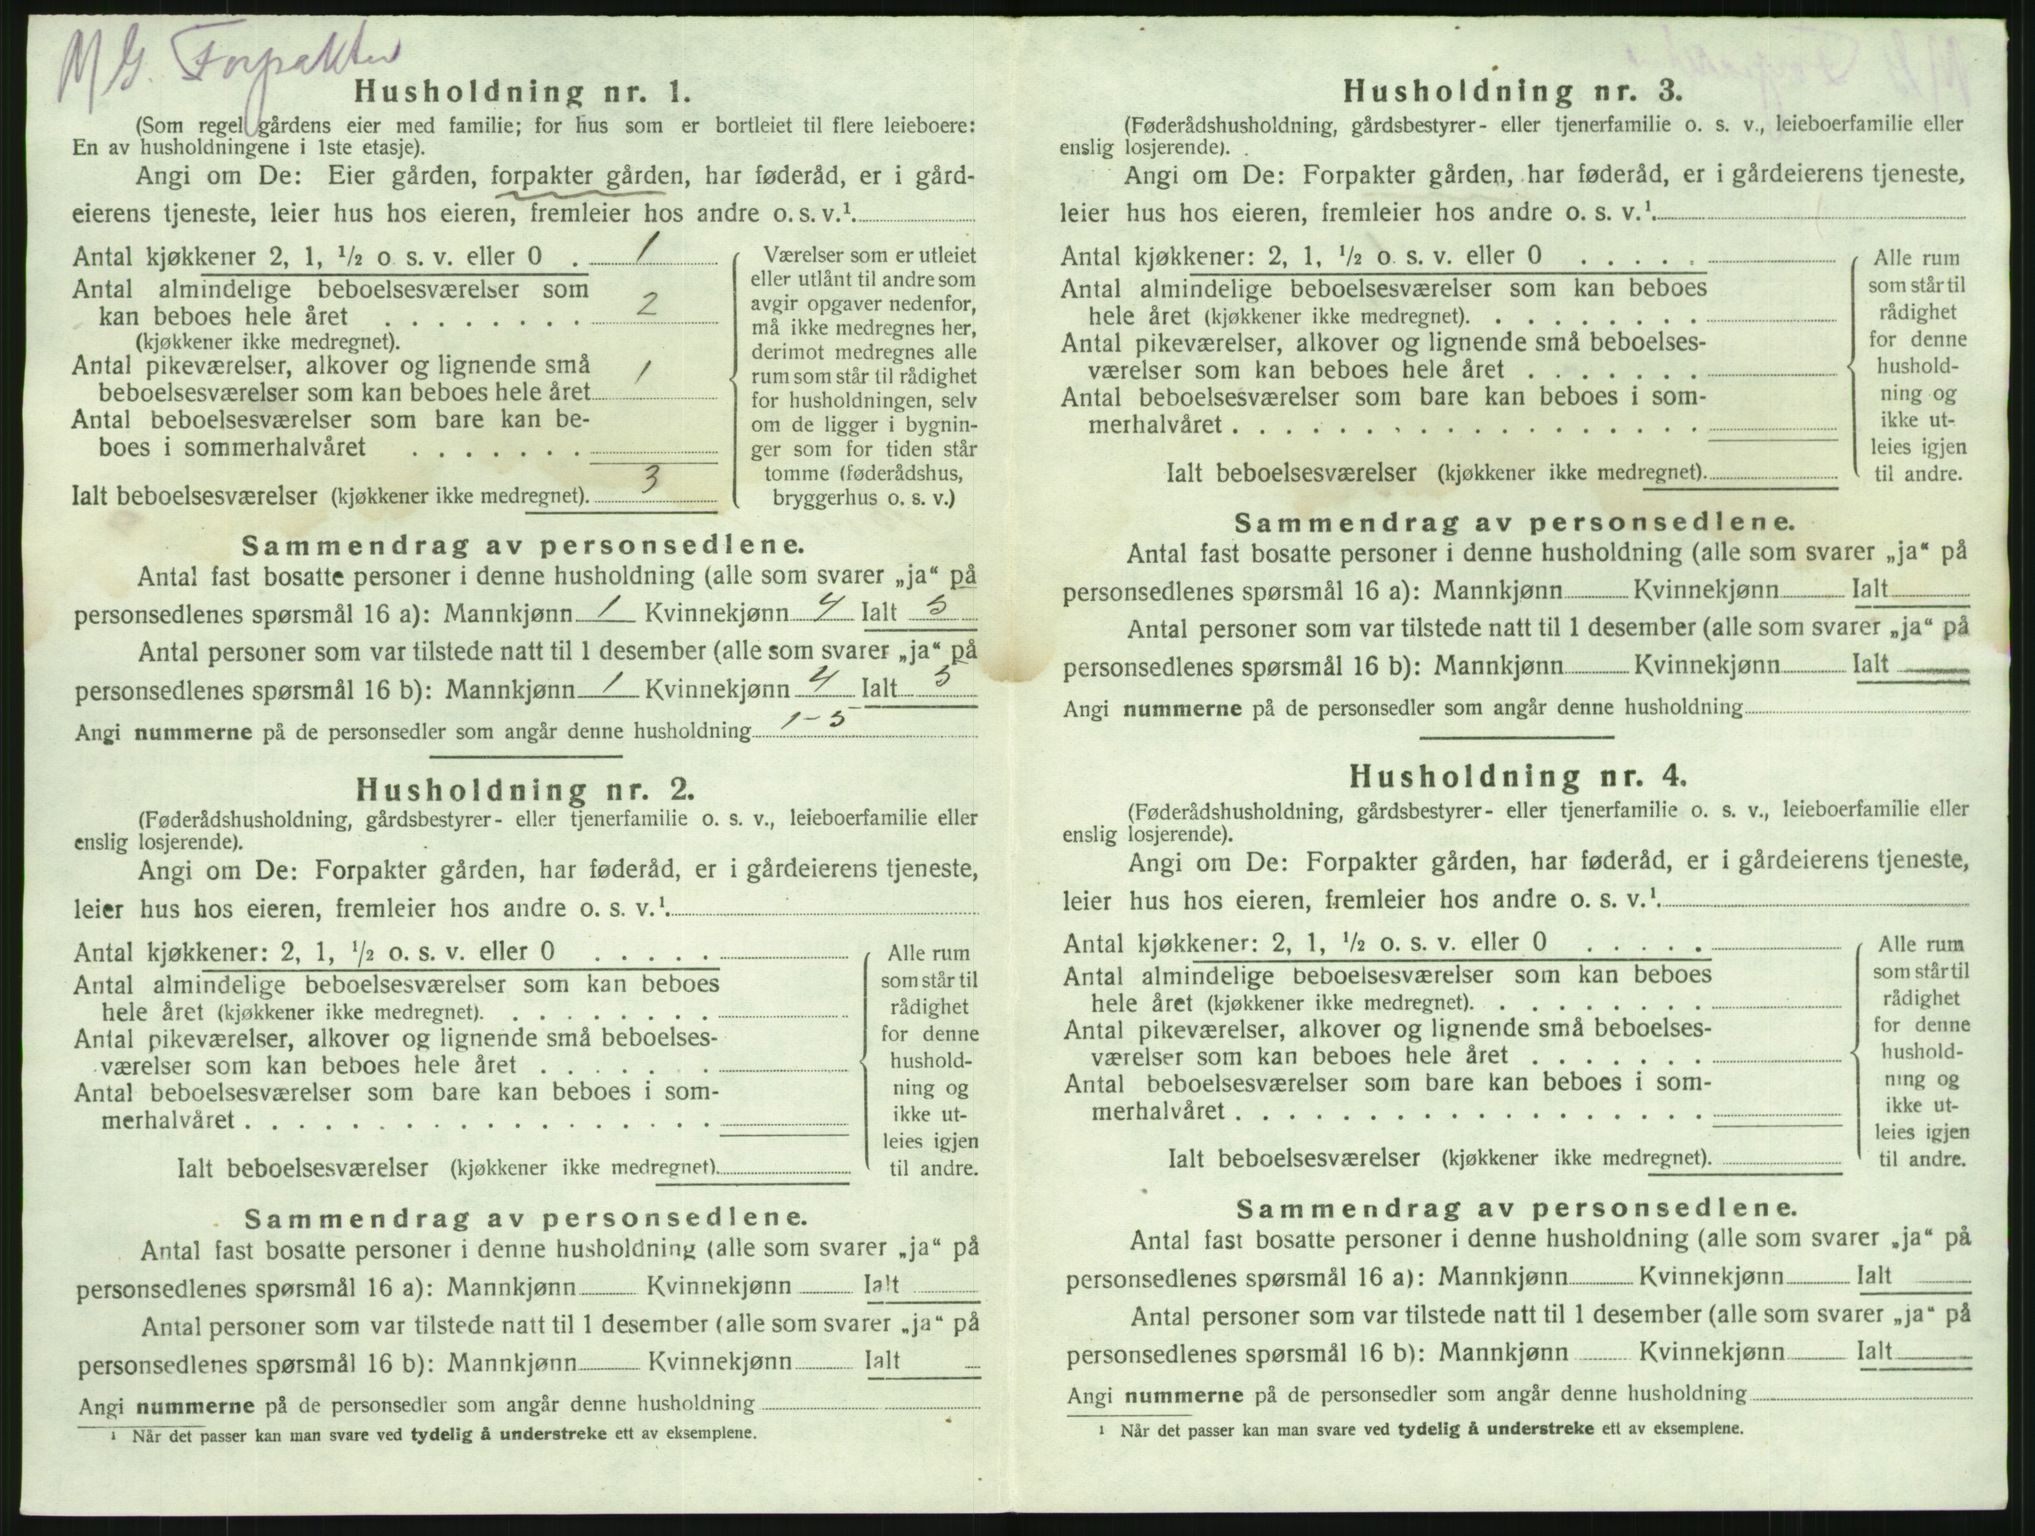 M G. Forpakter
Husholdning nr. 1.
(Som regel gårdens eier med familie; for hus som er bortleiet til flere leieboere:
En av husholdningene i 1ste etasje).
Angi om De: Eier gården, forpakter gården, har føderåd, er i gård-
eierens tjeneste, leier hus hos eieren, fremleier hos andre o. s. v.¹.
Antal kjøkkener 2, 1, ½ o. s. v. eller 0 . 1
Antal almindelige beboelsesværelser som
kan beboes hele året . . . . . . . . 2
(kjøkkener ikke medregnet).
Antal pikeværelser, alkover og lignende små
beboelsesværelser som kan beboes hele året 1
Antal beboelsesværelser som bare kan be-
boes i sommerhalvåret . . . . . . .
Ialt beboelsesværelser (kjøkkener ikke medregnet). 3
Værelser som er utleiet
eller utlånt til andre som
avgir opgaver nedenfor,
må ikke medregnes her,
derimot medregnes alle
rum som står til rådighet
for husholdningen, selv
om de ligger i bygnin-
ger som for tiden står
tomme (føderådshus,
bryggerhus o. s. v.)
Sammendrag av personsedlene.
Antal fast bosatte personer i denne husholdning (alle som svarer „ja“ på
personsedlenes spørsmål 16 a): Mannkjønn 1 Kvinnekjønn 4 Ialt 5
Antal personer som var tilstede natt til 1 desember (alle som svarer „ja“ på
personsedlenes spørsmål 16 b): Mannkjønn 1 Kvinnekjønn 4 Ialt 5
Angi nummerne på de personsedler som angår denne husholdning 1-5
Husholdning nr. 2.
(Føderådshusholdning, gårdsbestyrer- eller tjenerfamilie o. s. v., leieboerfamilie eller
enslig losjerende).
Angi om De: Forpakter gården, har føderåd, er i gårdeierens tjeneste,
leier hus hos eieren, fremleier hos andre o. s. v.¹.
Antal kjøkkener: 2, 1, ½ o. s. v. eller 0 . . . . .
Antal almindelige beboelsesværelser som kan beboes
hele året (kjøkkener ikke medregnet). . . . . . . . .
Antal pikeværelser, alkover og lignende små beboelses-
værelser som kan beboes hele året . . . . . . .
Antal beboelsesværelser som bare kan beboes i som-
merhalvåret . . . . . . . . . . . . . . . . . .
Ialt beboelsesværelser (kjøkkener ikke medregnet).
Alle rum
som står til
rådighet
for denne
hushold-
ning og
ikke ut-
leies igjen
til andre.
Sammendrag av personsedlene.
Antal fast bosatte personer i denne husholdning (alle som svarer „ja“ på
personsedlenes spørsmål 16 a): Mannkjønn Kvinnekjønn Ialt
Antal personer som var tilstede natt til 1 desember (alle som svarer „ja“ på
personsedlenes spørsmål 16 b): Mannkjønn Kvinnekjønn Ialt
Angi nummerne på de personsedler som angår denne husholdning
¹ Når det passer kan man svare ved tydelig å understreke ett av eksemplene.
Husholdning nr. 3.
(Føderådshusholdning, gårdsbestyrer- eller tjenerfamilie o. s. v., leieboerfamilie eller
enslig losjerende).
Angi om De: Forpakter gården, har føderåd, er i gårdeierens tjeneste,
leier hus hos eieren, fremleier hos andre o. s. v.¹.
Antal kjøkkener: 2, 1, ½ o. s. v. eller 0 . . . . .
Antal almindelige beboelsesværelser som kan beboes
hele året (kjøkkener ikke medregnet). . . . . . . . .
Antal pikeværelser, alkover og lignende små beboelses-
værelser som kan beboes hele året . . . . . . .
Antal beboelsesværelser som bare kan beboes i som-
merhalvåret . . . . . . . . . . . . . . . . . .
Ialt beboelsesværelser (kjøkkener ikke medregnet).
Alle rum
som står til
rådighet
for denne
hushold-
ning og
ikke ut-
leies igjen
til andre.
Sammendrag av personsedlene.
Antal fast bosatte personer i denne husholdning (alle som svarer „ja“ på
personsedlenes spørsmål 16 a): Mannkjønn Kvinnekjønn Ialt
Antal personer som var tilstede natt til 1 desember (alle som svarer „ja“ på
personsedlenes spørsmål 16 b): Mannkjønn Kvinnekjønn Ialt
Angi nummerne på de personsedler som angår denne husholdning
Husholdning nr. 4.
(Føderådshusholdning, gårdsbestyrer- eller tjenerfamilie o. s. v., leieboerfamilie eller
enslig losjerende).
Angi om De: Forpakter gården, har føderåd, er i gårdeierens tjeneste,
leier hus hos eieren, fremleier hos andre o. s. v.¹.
Antal kjøkkener: 2, 1, ½ o. s. v. eller 0 . . . . .
Antal almindelige beboelsesværelser som kan beboes
hele året (kjøkkener ikke medregnet). . . . . . . . .
Antal pikeværelser, alkover og lignende små beboelses-
værelser som kan beboes hele året . . . . . . .
Antal beboelsesværelser som bare kan beboes i som-
merhalvåret . . . . . . . . . . . . . . . . . .
Ialt beboelsesværelser (kjøkkener ikke medregnet).
Alle rum
som står til
rådighet
for denne
hushold-
ning og
ikke ut-
leies igjen
til andre.
Sammendrag av personsedlene.
Antal fast bosatte personer i denne husholdning (alle som svarer „ja“ på
personsedlenes spørsmål 16 a): Mannkjønn Kvinnekjønn Ialt
Antal personer som var tilstede natt til 1 desember (alle som svarer „ja“ på
personsedlenes spørsmål 16 b): Mannkjønn Kvinnekjønn Ialt
Angi nummerne på de personsedler som angår denne husholdning
¹ Når det passer kan man svare ved tydelig å understreke ett av eksemplene.